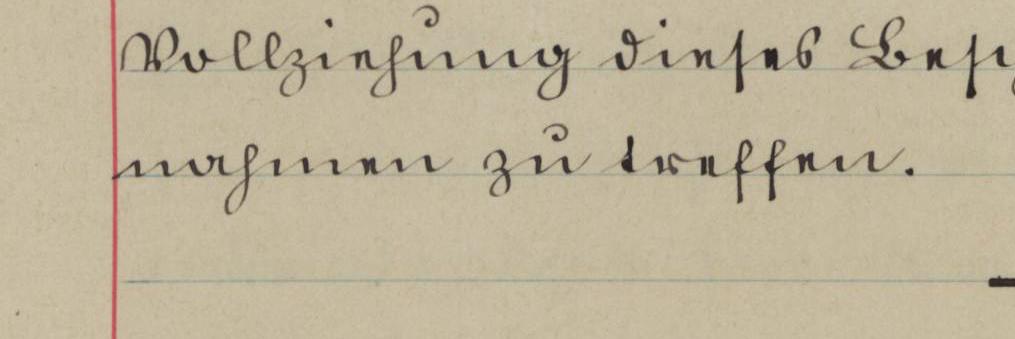 Vollziehung dieses Bes
nahmen zu treffen.